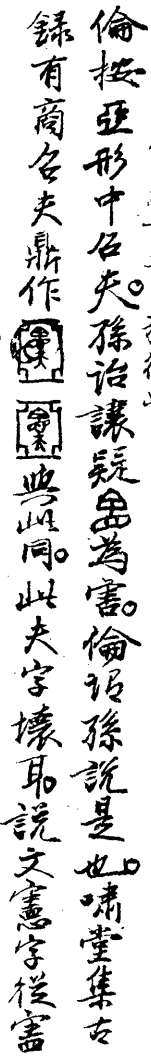 倫按亞形中召夫。孫詒讓疑為害。倫謂孫說是也。嘯堂集古
錄有商召夫鼎作與此同。此夫字壞耳。說文憲字從害